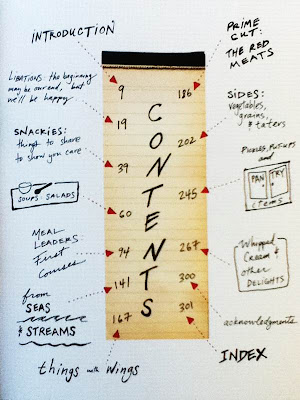 INTRODUCTION
9
LIBATIONS: the beginning
may be our end, but
we'll be happy
19
SNACKIES:
things to share
to show you care
39
SOUPS · SALADS
60
MEAL
LEADERS
First
Courses
94
from
SEAS
& STREAMS
141
things with wings
167
CONTENTS
PRIME
CUT:
THE RED
MEATS
186
SIDES:
vegetables,
grains,
& taters
202
PICKLES, PUT-UPS
and
PANTRY
items
245
Whipped
Cream &
other
DELIGHTS
267
acknowledgments
300
INDEX
301